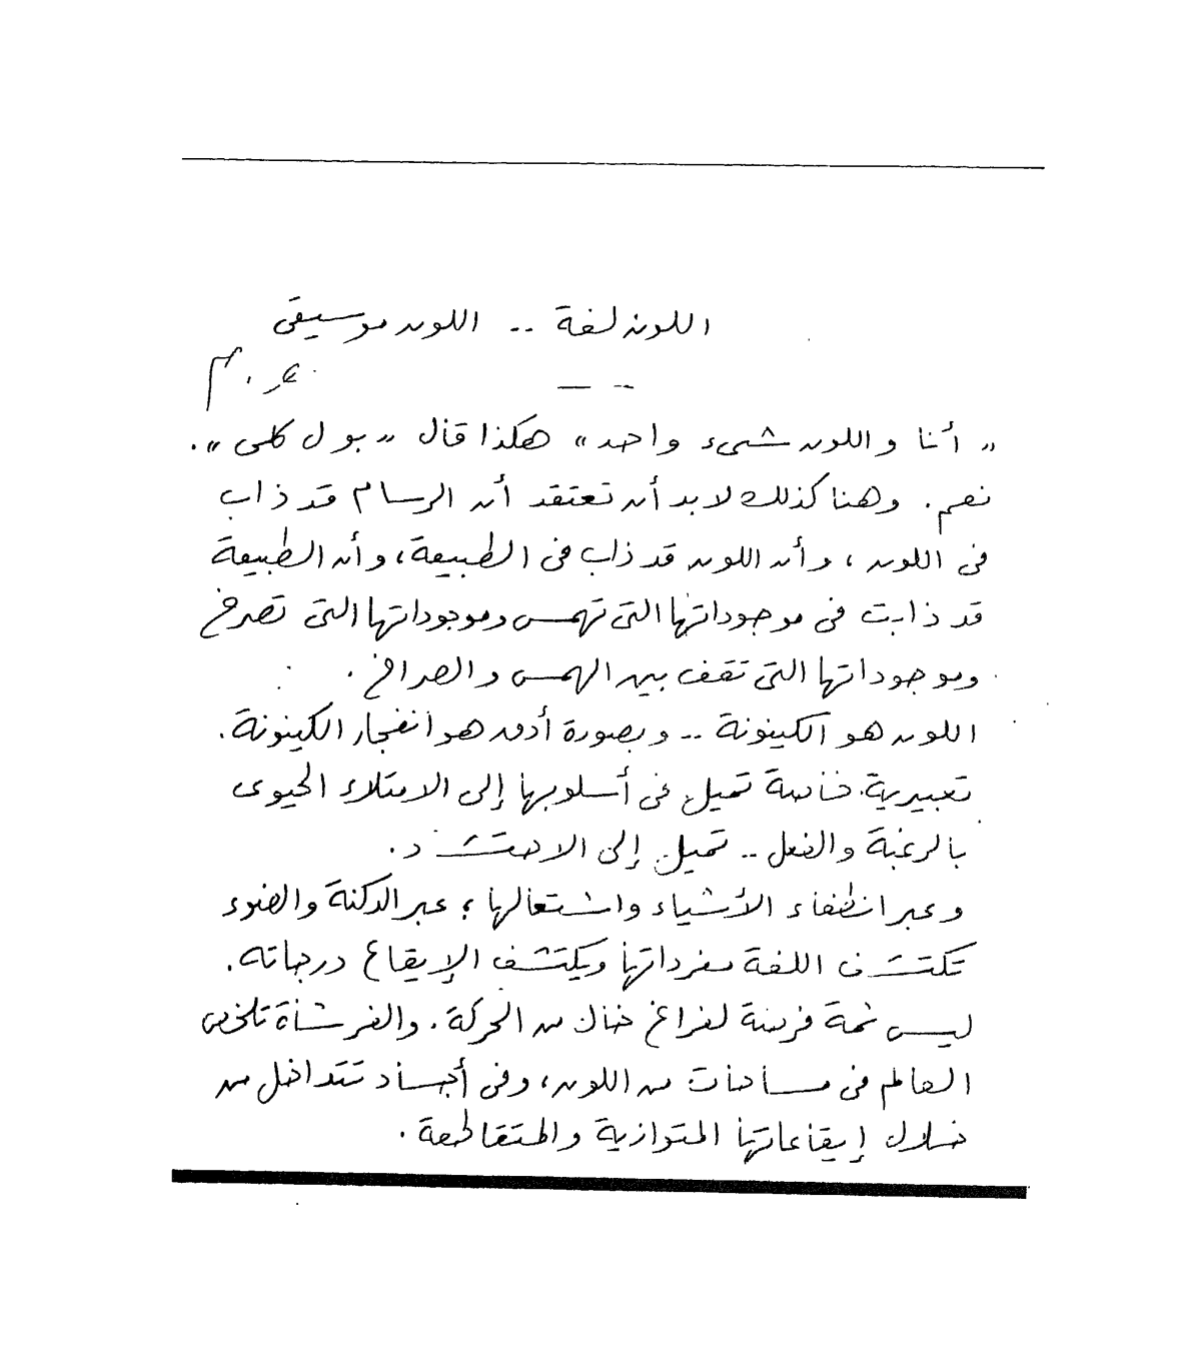 اللون لغة .. اللون موسيقى
"أنا واللون شىء واحد" هكذا قال "بول كلى".
نعم. وهنا كذلك لابد أن تعتقد أن الرسام قد ذاب
فى اللون، وأن اللون قد ذاب فى الطبيعة، وأن الطبيعة
قد ذابت فى موجوداتها التى تهمس وموجوداتها التى تصرخ
وموجوداتها التى تقف بين الهمس والصراخ.
اللون هو الكينونة .. وبصورة أدق هو انفجار الكينونة.
تعبيرية خاصة تميل فى أسلوبها إلى الامتلاء الحيوى
بالرغبة والفعل .. تميل إلى الاحتشاد.
وعبر انطفاء الأشياء واشتعالها؛ عبر الدكنة والضوء
تكتشف اللغة مفرداتها ويكتشف الإيقاع درجاته.
ليس ثمة فرصة لفراغ خال من الحركة. والفرشاة تلخص
العالم فى مساحات من اللون، وفى أجساد تتداخل من
خلال إيقاعاتها المتوازية والمتقاطعة.